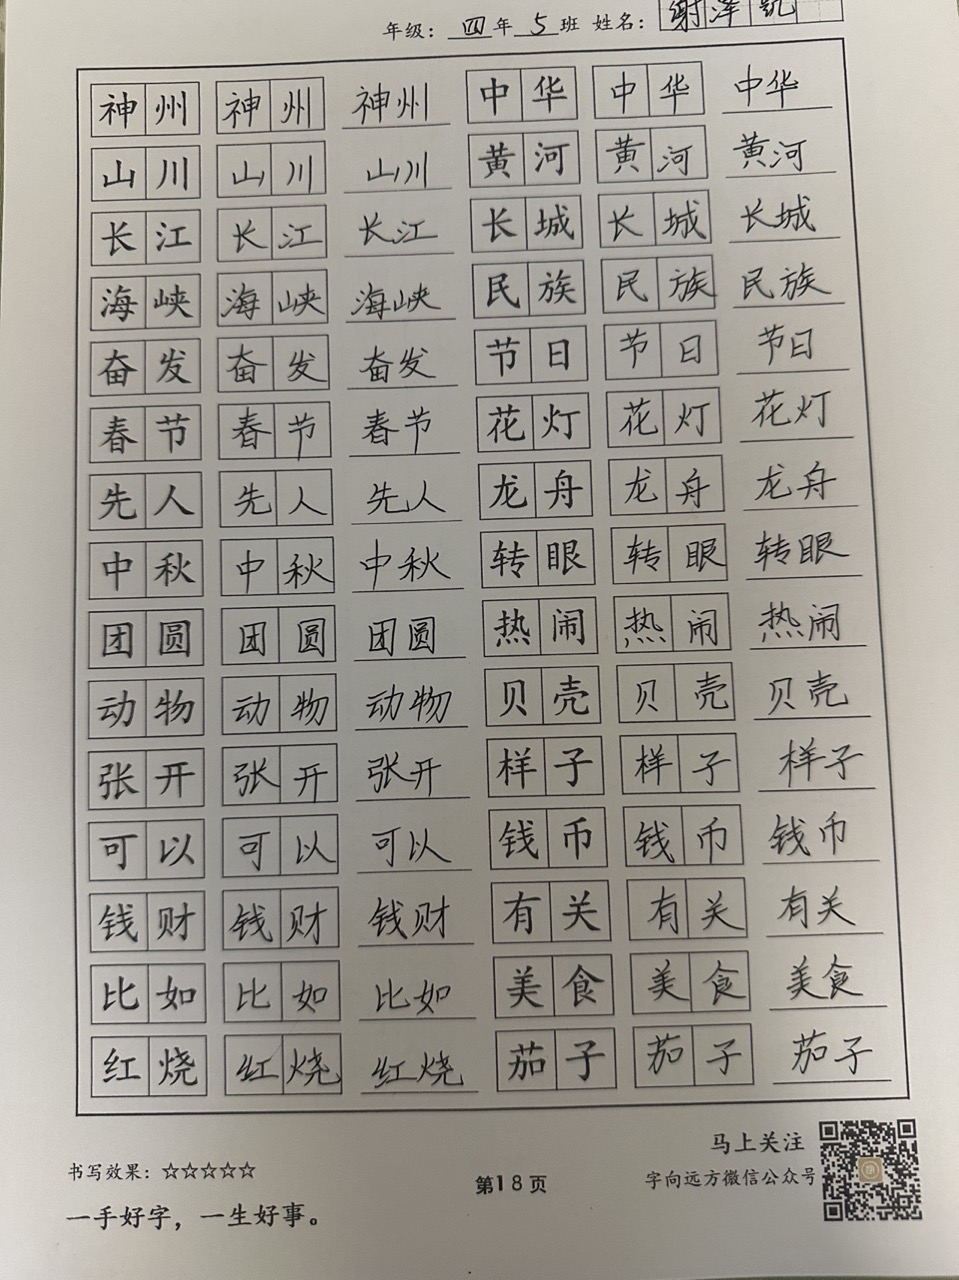 年级：四年5班 姓名：谢泽凯
神州 神州 神州 中华 中华 中华
山川 山川 山川 黄河 黄河 黄河
长江 长江 长江 长城 长城 长城
海峡 海峡 海峡 民族 民族 民族
奋发 奋发 奋发 节日 节日 节日
春节 春节 春节 花灯 花灯 花灯
先人 先人 先人 龙舟 龙舟 龙舟
中秋 中秋 中秋 转眼 转眼 转眼
团圆 团圆 团圆 热闹 热闹 热闹
动物 动物 动物 贝壳 贝壳 贝壳
张开 张开 张开 样子 样子 样子
可以 可以 可以 钱币 钱币 钱币
钱财 钱财 钱财 有关 有关 有关
比如 比如 比如 美食 美食 美食
红烧 红烧 红烧 茄子 茄子 茄子
马上关注
书写效果：☆☆☆☆☆ 第18页 字向远方微信公众号
一手好字，一生好事。